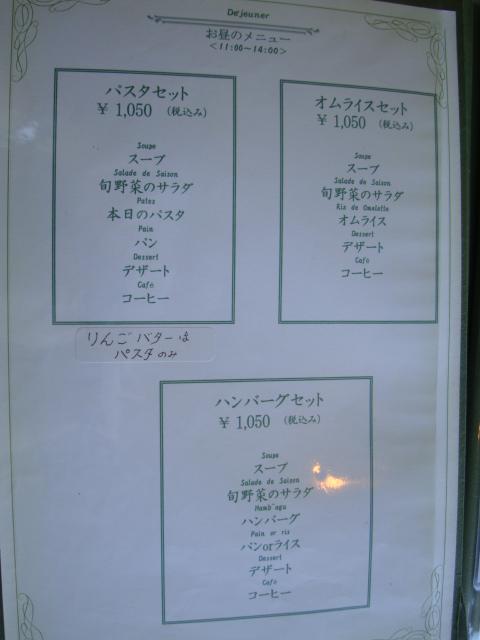 De'jeuner
お昼のメニュー
<11:00~14:00>
パスタセット
¥ 1,050 (税込み)
Soupe
スープ
Salade de Saison
旬野菜のサラダ
Patez
本日のパスタ
Pain
パン
Dessert
デザート
Café
コーヒー
りんごバターは
パスタのみ
オムライスセット
¥ 1,050 (税込み)
Soupe
スープ
Salade de Saison
旬野菜のサラダ
Ris de Omelette
オムライス
Dessert
デザート
Café
コーヒー
ハンバーグセット
¥ 1,050 (税込み)
Soupe
スープ
Salade de Saison
旬野菜のサラダ
Hamb'agu
ハンバーグ
Pain or ris
パンorライス
Dessert
デザート
Café
コーヒー